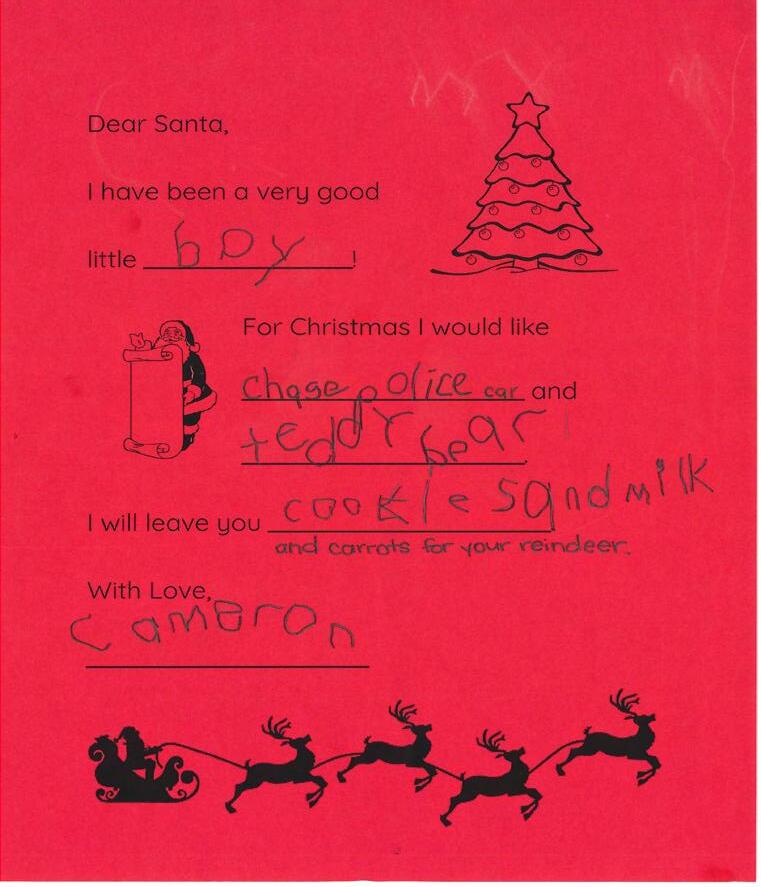 Dear Santa,
I have been a very good
little boy!
For Christmas I would like
chase police car and
teddy bear
I will leave you cookies and milk
and carrots for your reindeer.
With Love,
Cameron